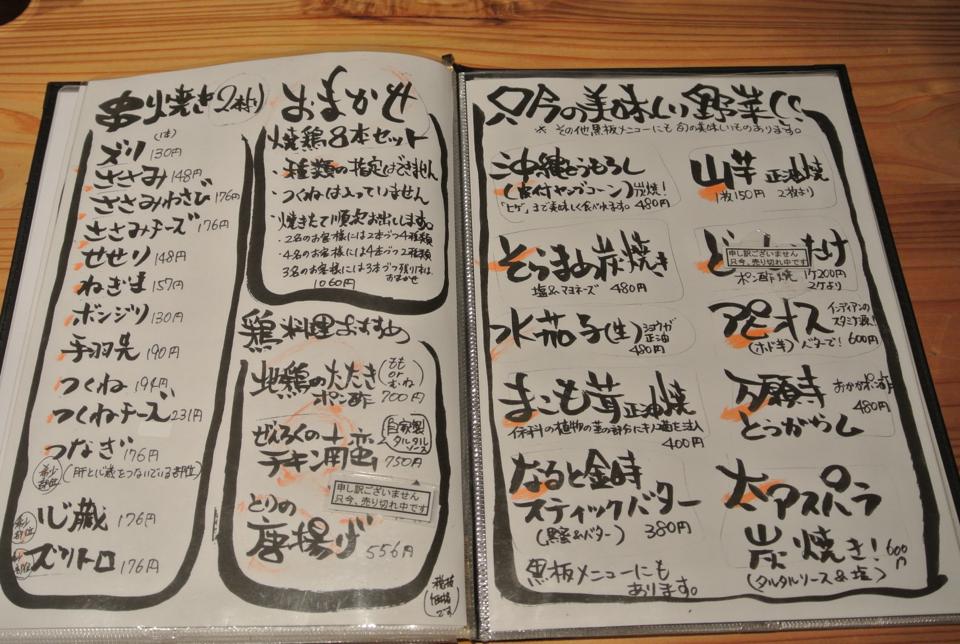 串焼き 2本より
(1本)
ズリ 130円
ささみ 148円
ささみわさび 176円
ささみチーズ 176円
せせり 148円
ねぎま 157円
ボンジリ 130円
手羽先 190円
つくね 194円
つくねチーズ 231円
つなぎ 176円
希少部位 (肝と心臓をつないでいる部位)
希少部位 心臓 176円
ズリトロ 176円
おまかせ
焼鶏8本セット
・種類の指定はできません
・つくねは入っていません
・焼きたて順次お出しします。
・2名のお客様には2本づつ4種類
・4名のお客様には4本づつ2種類
3名のお客様には3本づつ残りはおまかせ
1060円
鶏料理おすすめ
地鶏のたたき (もも or むね)
ポン酢 700円
ぜんろくの
チキン南蛮 750円
自家製タルタルソース
申し訳ございません
只今、売り切れ中です
とりの
唐揚げ 556円
税抜価格です
只今の美味しい野菜!!
※その他黒板メニューにも旬の美味しいものあります。
沖縄とうもろし
(皮付ヤングコーン) 炭焼!
「ヒゲ」まで美味しく食べれます。 480円
そらまめ炭焼き
塩&マヨネーズ 480円
水茄子(生) ショウガ正油
480円
まこも茸 正油焼
イネ科の植物の茎の部分にキノコ菌を注入
400円
なると金時
スティックバター
(黒蜜&バター) 380円
黒板メニューにも
あります。
山芋 正油焼
1枚150円 2枚より
ど たけ
申し訳ございません
只今、売り切れ中です
ポン酢焼 1ケ200円
2ケより
アピオス インディアンのスタミナ源!!
(ホド芋) バターで! 600円
万願寺 おかかポン酢
とうがらし 480円
太アスパラ
炭焼き! 600円
(タルタルソース&塩)